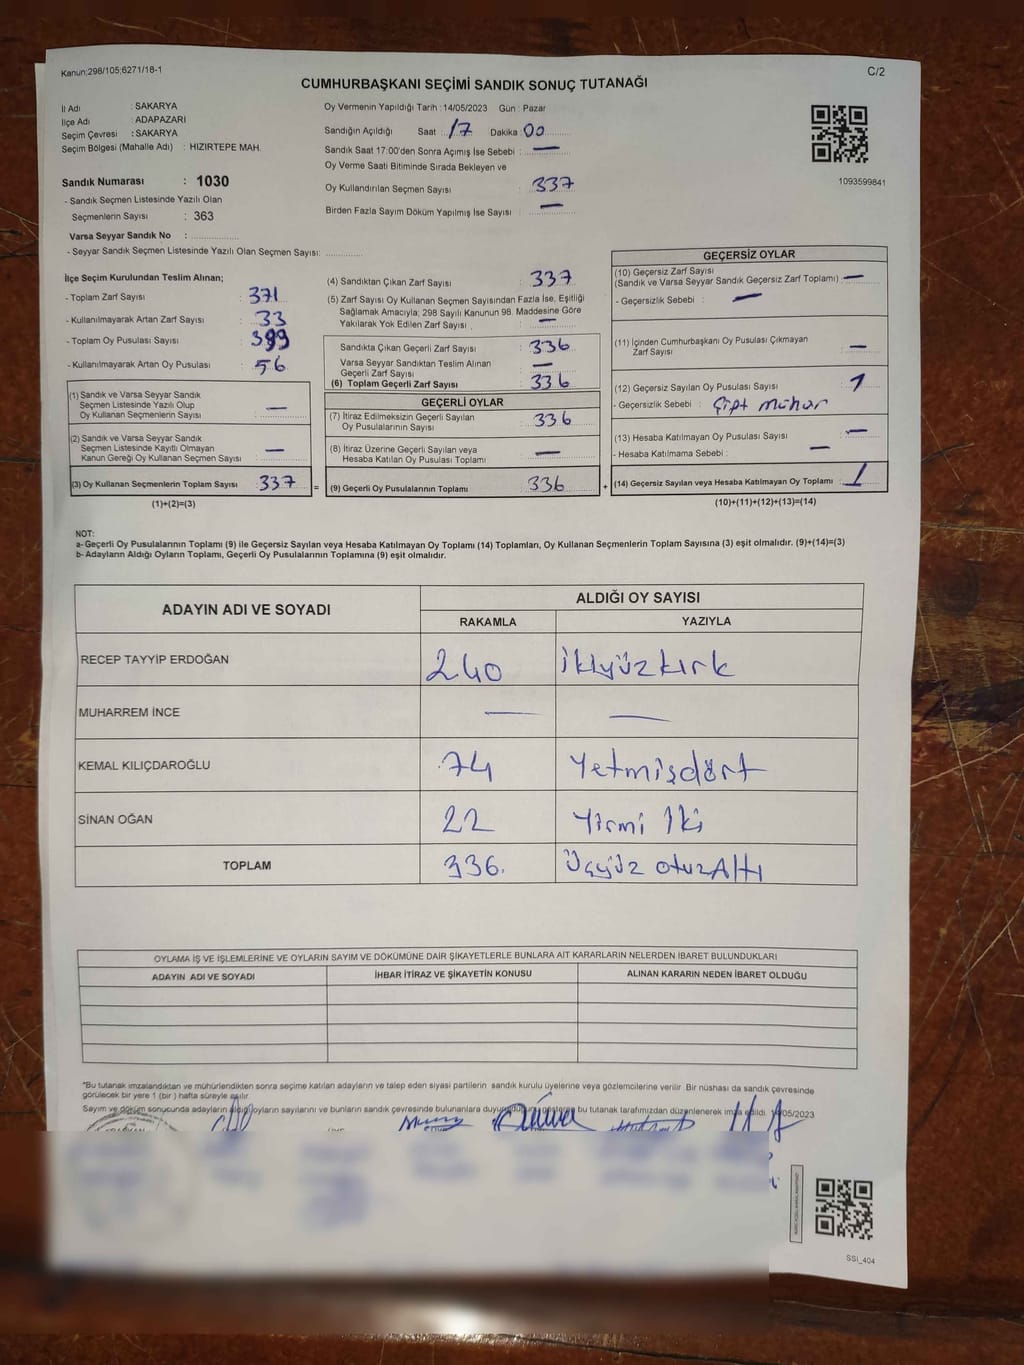 Kanun;298/105;6271/18-1
C/2
CUMHURBAŞKANI SEÇİMİ SANDIK SONUÇ TUTANAĞI
İl Adı : SAKARYA
İlçe Adı : ADAPAZARI
Seçim Çevresi : SAKARYA
Seçim Bölgesi (Mahalle Adı) : HIZIRTEPE MAH.
Sandık Numarası : 1030
- Sandık Seçmen Listesinde Yazılı Olan
Seçmenlerin Sayısı : 363
Varsa Seyyar Sandık No :
- Seyyar Sandık Seçmen Listesinde Yazılı Olan Seçmen Sayısı:
Oy Vermenin Yapıldığı Tarih : 14/05/2023 Gün : Pazar
Sandığın Açıldığı Saat 17 Dakika : 00
Sandık Saat 17:00'den Sonra Açımış İse Sebebi : —
Oy Verme Saati Bitiminde Sırada Bekleyen ve
Oy Kullandırılan Seçmen Sayısı : 337
Birden Fazla Sayım Döküm Yapılmış İse Sayısı : —
1093599841
İlçe Seçim Kurulundan Teslim Alınan;
- Toplam Zarf Sayısı : 371
- Kullanılmayarak Artan Zarf Sayısı : 33
- Toplam Oy Pusulası Sayısı :
- Kullanılmayarak Artan Oy Pusulası : 56
(1) Sandık ve Varsa Seyyar Sandık
Seçmen Listesinde Yazılı Olup
Oy Kullanan Seçmenlerin Sayısı : —
(2) Sandık ve Varsa Seyyar Sandık
Seçmen Listesinde Kayıtlı Olmayan
Kanun Gereği Oy Kullanan Seçmen Sayısı : —
(3) Oy Kullanan Seçmenlerin Toplam Sayısı : 337
(1)+(2)=(3)
=
(4) Sandıktan Çıkan Zarf Sayısı : 337
(5) Zarf Sayısı Oy Kullanan Seçmen Sayısından Fazla İse, Eşitliği
Sağlamak Amacıyla; 298 Sayılı Kanunun 98. Maddesine Göre
Yakılarak Yok Edilen Zarf Sayısı : —
Sandıkta Çıkan Geçerli Zarf Sayısı : 336
Varsa Seyyar Sandıktan Teslim Alınan
Geçerli Zarf Sayısı : —
(6) Toplam Geçerli Zarf Sayısı : 336
GEÇERLİ OYLAR
(7) İtiraz Edilmeksizin Geçerli Sayılan
Oy Pusulalarının Sayısı : 336
(8) İtiraz Üzerine Geçerli Sayılan veya
Hesaba Katılan Oy Pusulası Toplamı : —
(9) Geçerli Oy Pusulalarının Toplamı : 336
+
GEÇERSİZ OYLAR
(10) Geçersiz Zarf Sayısı
(Sandık ve Varsa Seyyar Sandık Geçersiz Zarf Toplamı) : —
- Geçersizlik Sebebi : —
(11) İçinden Cumhurbaşkanı Oy Pusulası Çıkmayan
Zarf Sayısı : —
(12) Geçersiz Sayılan Oy Pusulası Sayısı : 1
- Geçersizlik Sebebi : Çift mühür
(13) Hesaba Katılmayan Oy Pusulası Sayısı : —
- Hesaba Katılmama Sebebi : —
(14) Geçersiz Sayılan veya Hesaba Katılmayan Oy Toplamı : 1
(10)+(11)+(12)+(13)=(14)
NOT:
a- Geçerli Oy Pusulalarının Toplamı (9) ile Geçersiz Sayılan veya Hesaba Katılmayan Oy Toplamı (14) Toplamları, Oy Kullanan Seçmenlerin Toplam Sayısına (3) eşit olmalıdır. (9)+(14)=(3)
b- Adayların Aldığı Oyların Toplamı, Geçerli Oy Pusulalarının Toplamına (9) eşit olmalıdır.
ADAYIN ADI VE SOYADI
ALDIĞI OY SAYISI
RAKAMLA YAZIYLA
RECEP TAYYİP ERDOĞAN 240 ikiyüzkırk
MUHARREM İNCE — —
KEMAL KILIÇDAROĞLU 74 Yetmişdört
SİNAN OĞAN 22 Yirmi İki
TOPLAM 336 Üçyüz otuzAltı
OYLAMA İŞ VE İŞLEMLERİNE VE OYLARIN SAYIM VE DÖKÜMÜNE DAİR ŞİKAYETLERLE BUNLARA AİT KARARLARIN NELERDEN İBARET BULUNDUKLARI
ADAYIN ADI VE SOYADI İHBAR İTİRAZ VE ŞİKAYETİN KONUSU ALINAN KARARIN NEDEN İBARET OLDUĞU
*Bu tutanak imzalandıktan ve mühürlendikten sonra seçime katılan adayların ve talep eden siyasi partilerin sandık kurulu üyelerine veya gözlemcilerine verilir. Bir nüshası da sandık çevresinde
görülecek bir yere 1 (bir ) hafta süreyle asılır.
Sayım ve döküm sonucunda adayların aldığı oyların sayılarını ve bunların sandık çevresinde bulunanlara bu tutanak tarafımızdan düzenlenerek imza edildi. 14/05/2023
SSİ_404